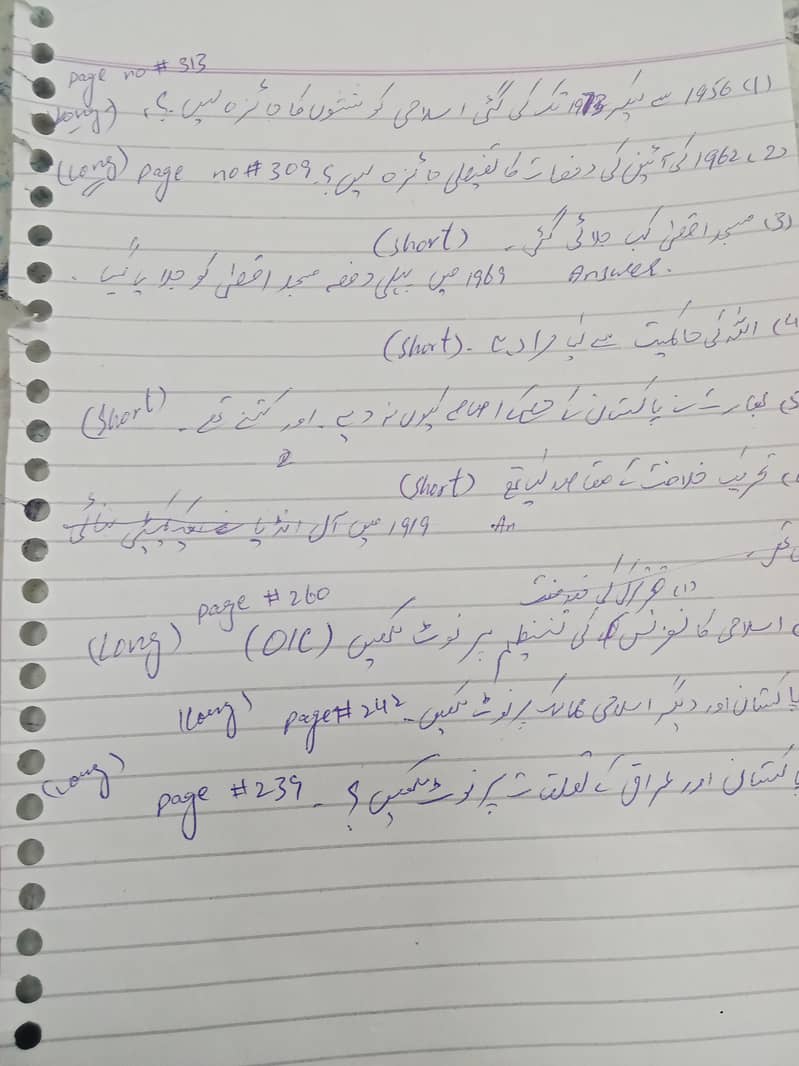 page no # 313
(1) 1956 سے لیکر 1973 تک کی گئی اسلامی کوششوں کا جائزہ لیں ؟ (Long)
(2) 1962 کی آئین کی دفعات کا تفصیلی جائزہ لیں ؟ page no # 309 (Long)
(3) مسجد اقصیٰ کب جلائی گئی ۔ (short)
Answer. 1969 میں پہلی دفعہ مسجد اقصیٰ کو جلایا گیا ۔
(4 اللہ کی حاکمیت سے کیا مراد ہے ۔ (short)
بھارت نے پاکستان کے حصے کے اثاثے کیوں نہ دیے ۔ اور کتنے تھے ۔ (short)
تحریک خلافت کے مقاصد کیا تھے (short)
An. 1919 میں آل انڈیا کمیٹی بنائی
گئی ۔
(1)
page # 260
اسلامی کانفرنس کی تنظیم پر نوٹ لکھیں (OIC) (Long)
پاکستان اور دیگر اسلامی ممالک پر نوٹ لکھیں ۔ page # 242 (Long)
پاکستان اور عراق کے تعلقات پر نوٹ لکھیں ؟ ۔ page # 239 (Long)